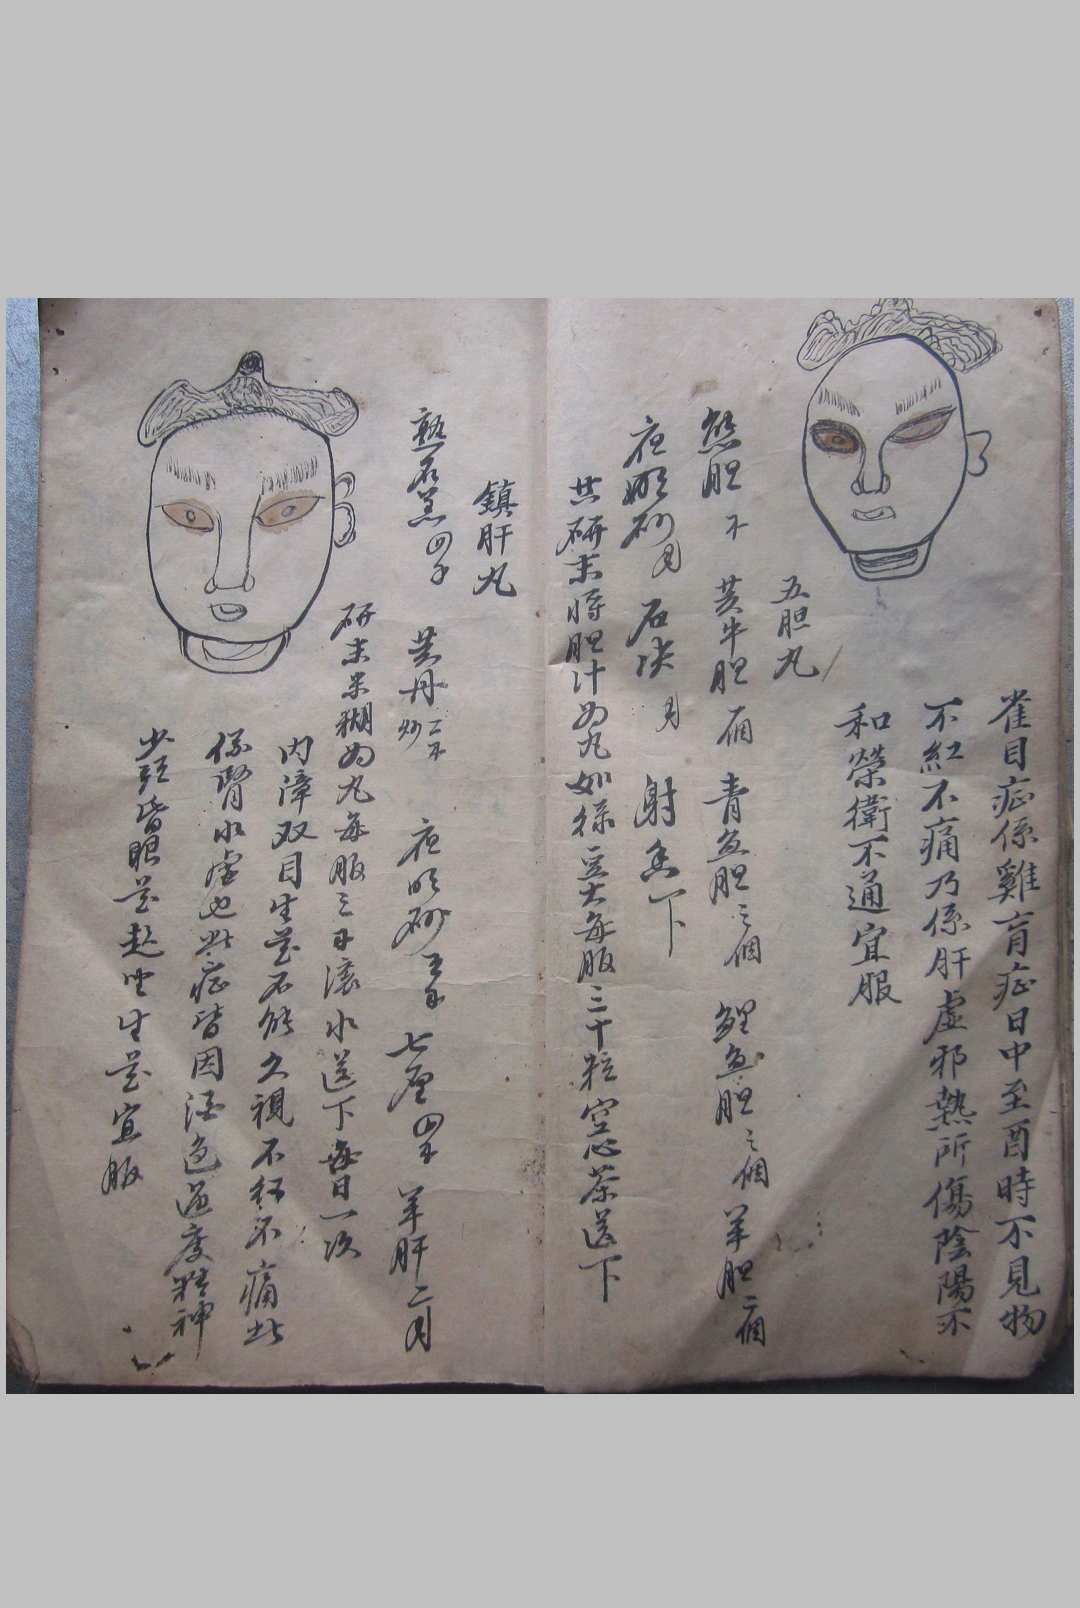 雀目症係雞盲症日中至酉時不見物
不紅不痛乃係肝虛邪熱所傷陰陽不
和榮衛不通宜服
五胆丸
熊胆 黃牛胆 青魚胆三個 鯉魚胆三個 羊胆二個
夜明砂 石决 射香
共研末將胆汁為丸如綠豆大每服三十粒空心茶送下
鎮肝丸
熟石羔 黃丹炒 夜明砂 七厘 羊肝二
研末米糊為丸每服三日滾水送下每日一次
內漳双目生花不能久視不紅不痛此
係腎水虛也此症皆因酒色過度精神
少 眼花起坐生花宜服